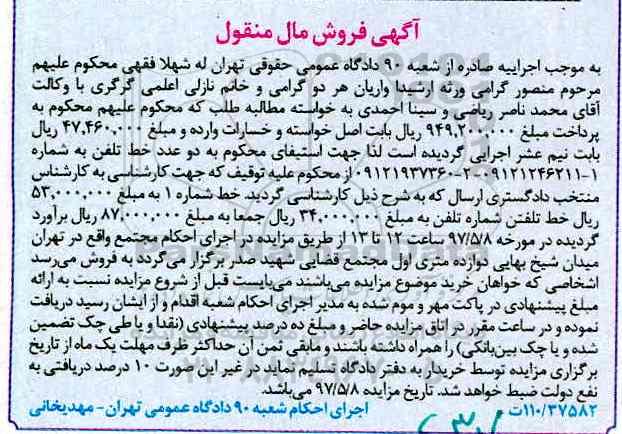 آگهی فروش مال منقول
به موجب اجراییه صادره از شعبه ۹۰ دادگاه عمومی حقوقی تهران له شهلا فقهی محکوم علیهم
مرحوم منصور گرامی ورثه ارشیدا واریان هر دو گرامی و خانم نازلی اعلمی گرگری با وکالت
آقای محمد ناصر ریاضی و سینا احمدی به خواسته مطالبه طلب که محکوم علیهم محکوم به
پرداخت مبلغ ۹۴۹,۲۰۰,۰۰۰ ریال بابت اصل خواسته و خسارات وارده و مبلغ ۴۷,۴۶۰,۰۰۰ ریال
بابت نیم عشر اجرایی گردیده است لذا جهت استیفای محکوم به دو عدد خط تلفن به شماره
۱-۰۹۱۲۱۲۴۶۲۱۱-۲-۰۹۱۲۱۹۳۷۳۶۰از محکوم علیه توقیف که جهت کارشناسی به کارشناس
منتخب دادگستری ارسال که به شرح ذیل کارشناسی گردید. خط شماره ۱ به مبلغ ۵۳,۰۰۰,۰۰۰
ریال خط تلفتن شماره تلفن به مبلغ ۳۴,۰۰۰,۰۰۰ ریال جمعا به مبلغ ۸۷,۰۰۰,۰۰۰ ریال برآورد
گردیده در مورخه ۹۷/۵/۸ ساعت ۱۲ تا ۱۳ از طریق مزایده در اجرای احکام مجتمع واقع در تهران
میدان شیخ بهایی دوازده متری اول مجتمع قضایی شهید صدر برگزار می‌گردد به فروش می‌رسد
اشخاصی که خواهان خرید موضوع مزایده می‌باشند می‌بایست قبل از شروع مزایده نسبت به ارائه
مبلغ پیشنهادی در پاکت مهر و موم شده به مدیر اجرای احکام شعبه اقدام و از ایشان رسید دریافت
نموده و در ساعت مقرر در اتاق مزایده حاضر و مبلغ ده درصد پیشنهادی (نقدا و یا طی چک تضمین
شده و یا چک بین‌بانکی) را همراه داشته باشند و مابقی ثمن آن حداکثر ظرف مهلت یک ماه از تاریخ
برگزاری مزایده توسط خریدار به دفتر دادگاه تسلیم نماید در غیر این صورت ۱۰ درصد دریافتی به
نفع دولت ضبط خواهد شد. تاریخ مزایده ۹۷/۵/۸ می‌باشد.
۱۱۰/۳۷۵۸۲ت اجرای احکام شعبه ۹۰ دادگاه عمومی تهران - مهدیخانی